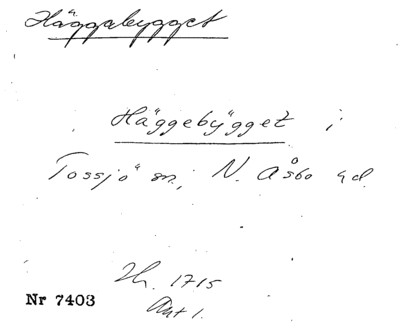 Häggebygget
Häggebygget i
Tossjö sn, N. Åsbo hd.
Jb. 1715
Ant 1.
Nr 7403